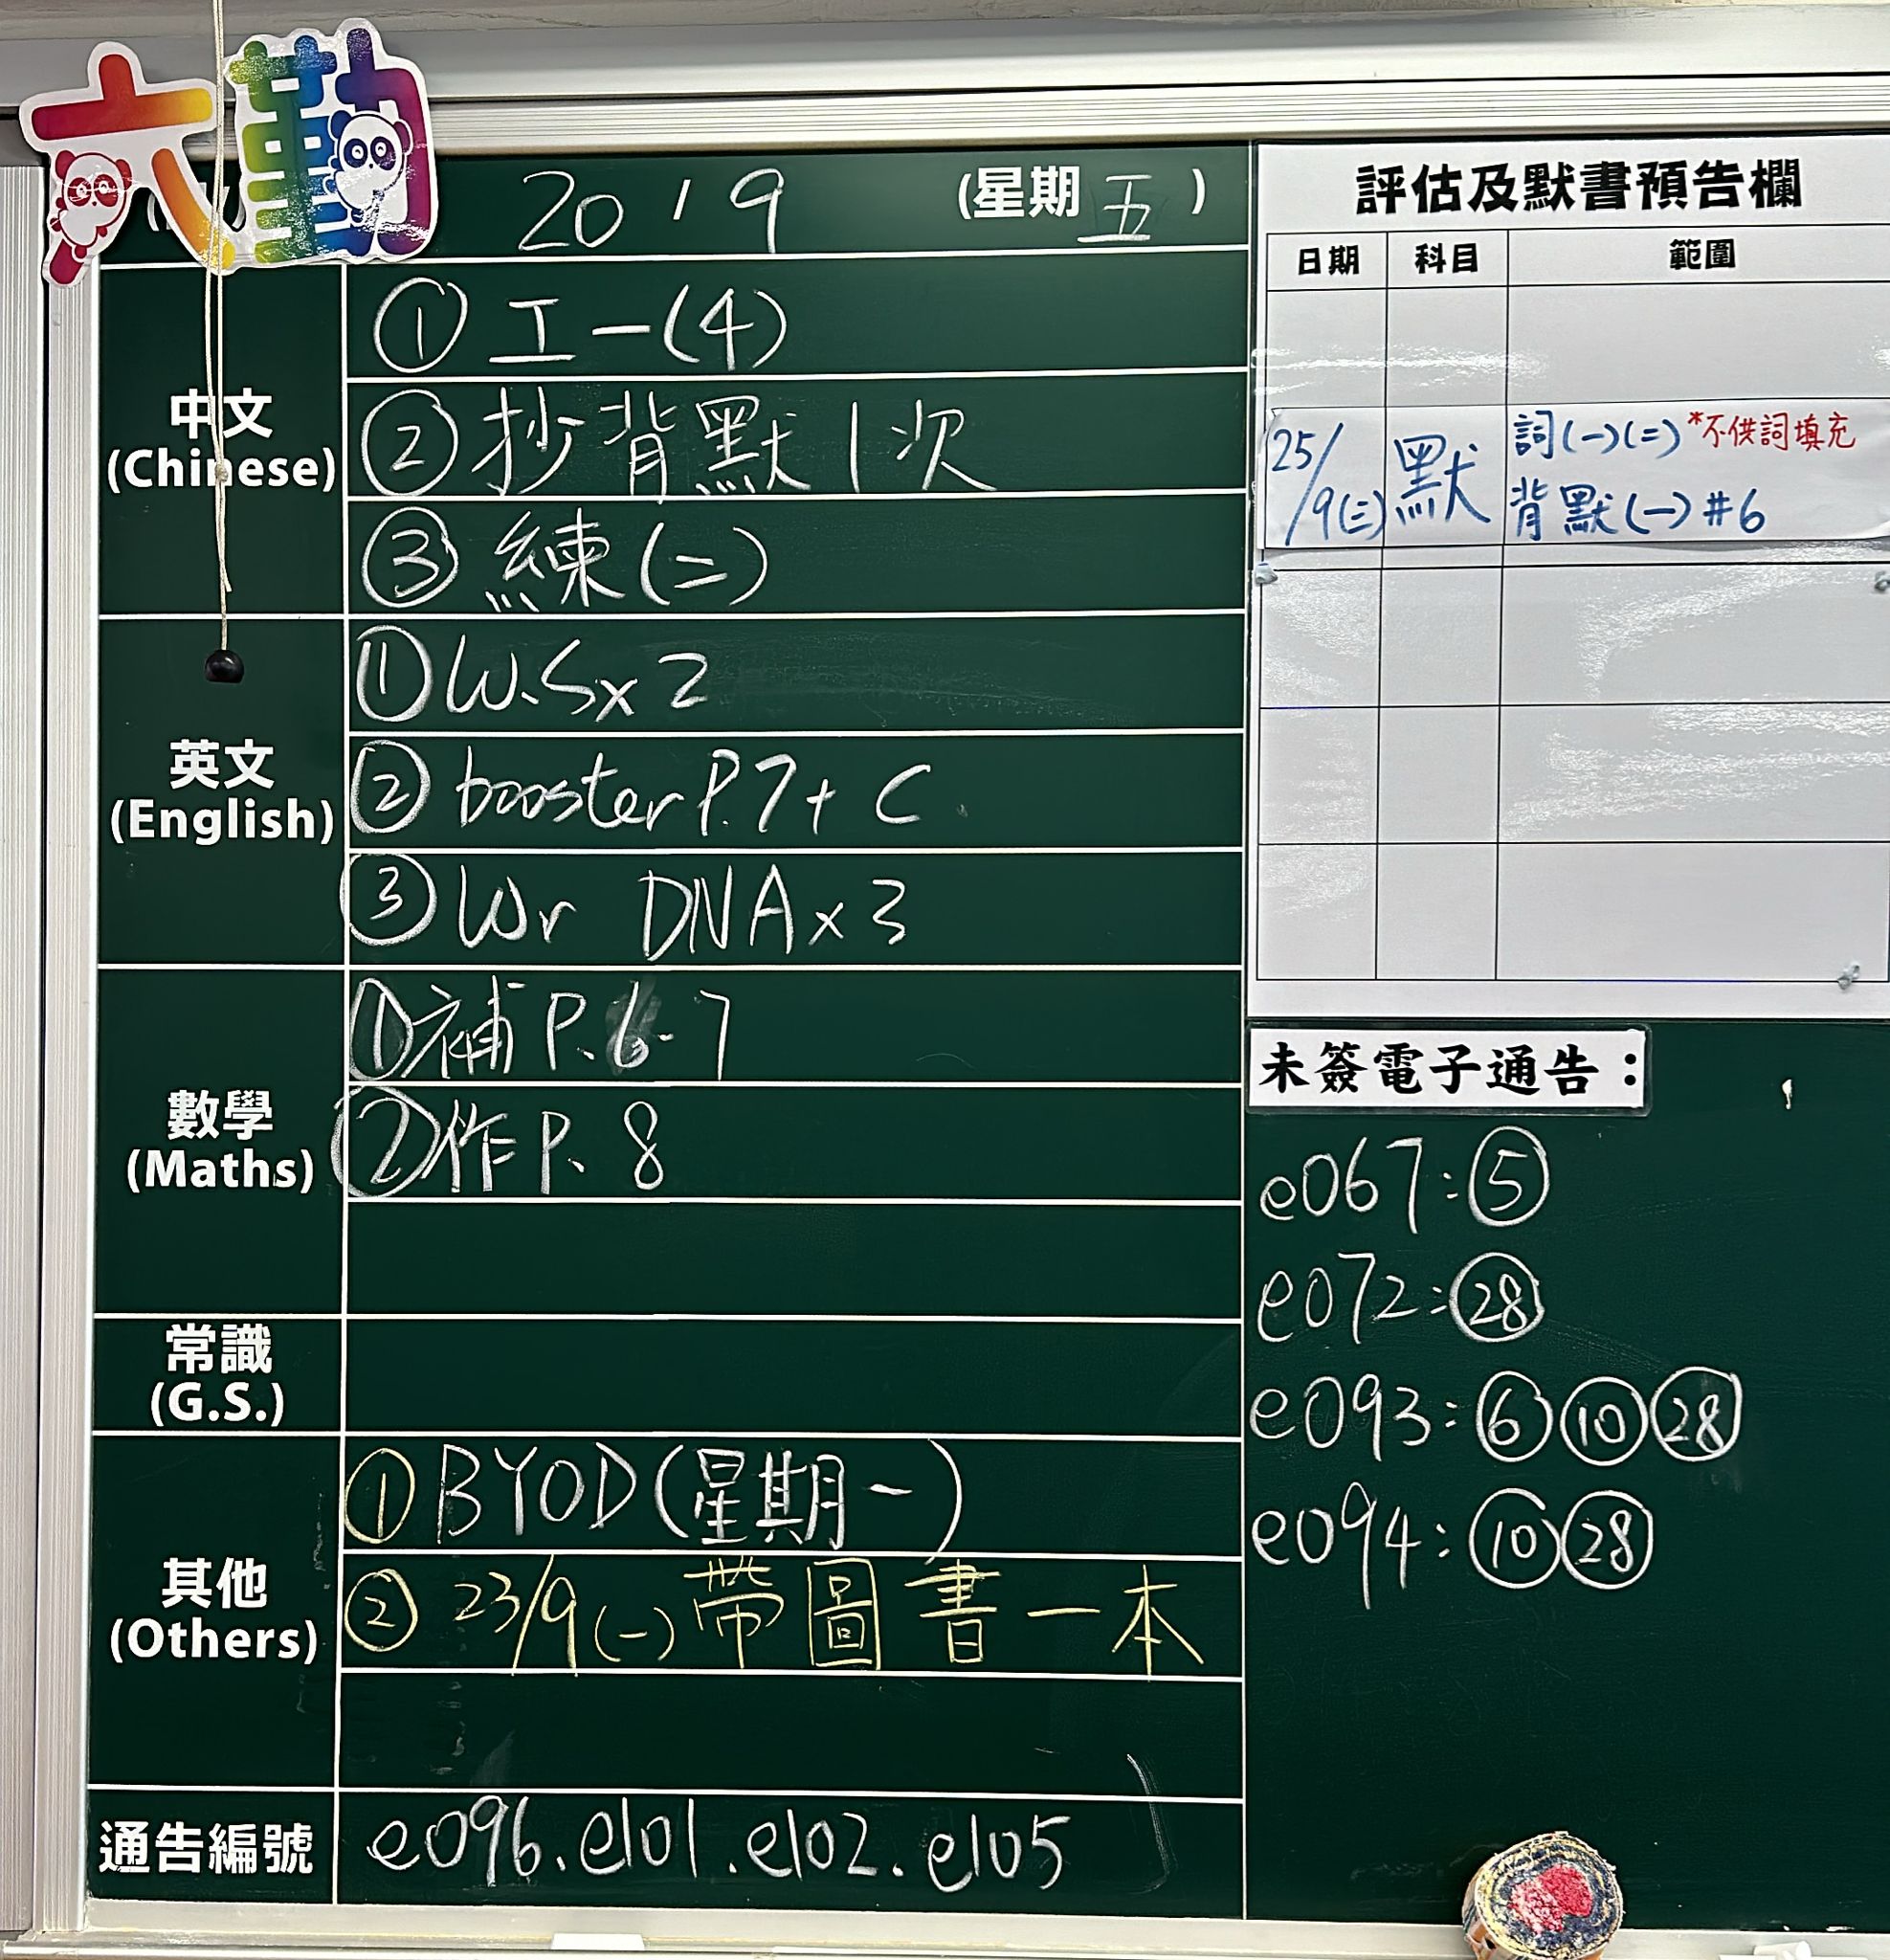 六勤
20 / 9 (星期 五 )
中文
(Chinese)
① 工一(4)
② 抄背默1次
③ 練(二)
英文
(English)
① W.S x 2
② booster P.7 + C
③ Wr DNA x 3
數學
(Maths)
① 補 P. 6-7
② 作 P. 8
常識
(G.S.)
其他
(Others)
① BYOD (星期一)
② 23/9 (一) 帶圖書一本
通告編號
e096. e101. e102. e105
評估及默書預告欄
日期 科目 範圍
25/9(三) 默 詞(一)(二) *不供詞填充
背默(一) #6
未簽電子通告：
e067: ⑤
e072: ㉘
e093: ⑥ ⑩ ㉘
e094: ⑩ ㉘